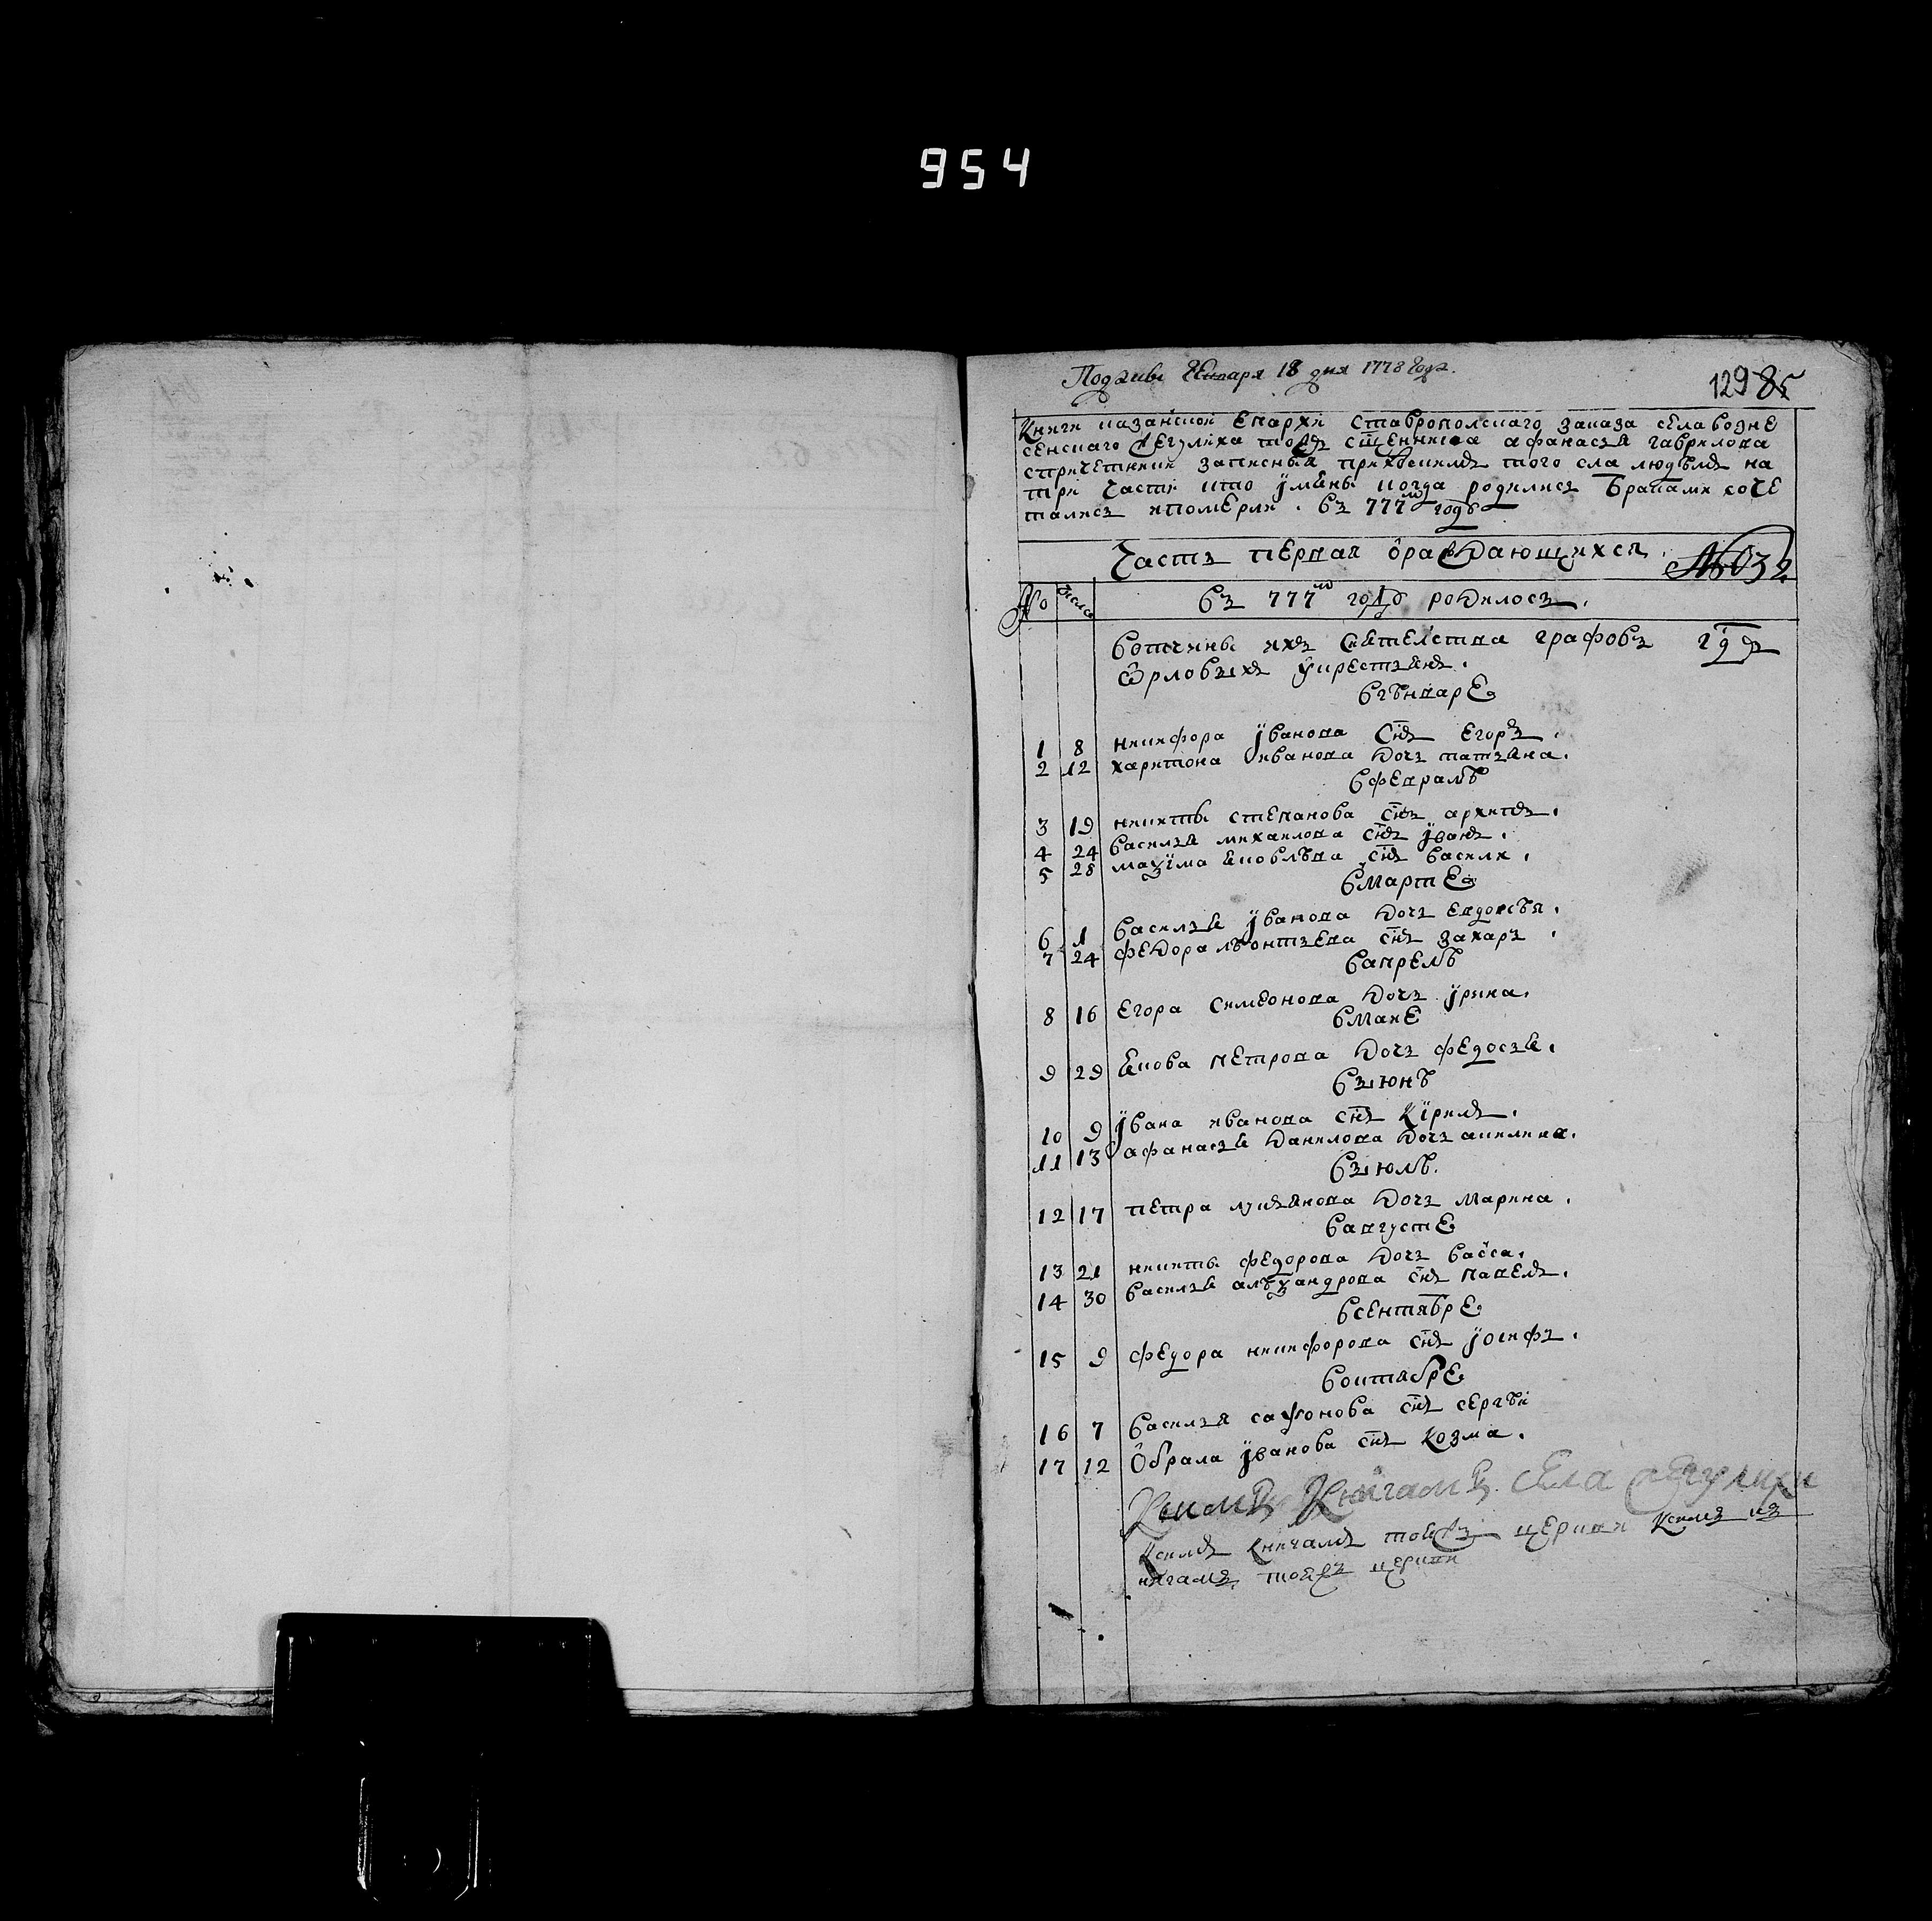 954
Подан Генваря 18 дня 1778 года.
129 85
Книги казанскои Епархи Ставрополскаго заказа села возне
сенскаго тож сщенника афанасья гаврилова
спричетники записныя прихоцким того сла людем на
три Части кто ймяны когда родилис Браками соче
талис и померли. въ 777м году
Часть первая ораждающихся.
№ число въ 777м году родилось.
Вотчины их сиятелства графовъ г
Орловых у крестьян.
вгенваре
1 8 никифора йванова снъ Егоръ.
2 12 харитона иванова дочь татьяна.
вфеврале
3 19 никиты степанова снъ архип.
4 24 василья михаилова снъ йван.
5 28 маѯима яковлева снъ василй.
вмарте
6 1 василья йванова дочь евдокея.
7 24 федора леонтьева снъ захаръ.
вапреле
8 16 Егора симеонова дочь йрина.
вмаие
9 29 якова петрова дочь федосья.
въ июне
10 9 йвана иванова снъ кирил.
11 13 афанасья данилова дочь акилина.
въ июле.
12 17 петра лукьянова дочь марина.
вавгусте
13 21 никиты федорова дочь васса.
14 30 василья алеѯандрова снъ павел.
всентябре
15 9 федора никифорова снъ йосифъ.
воктябре
16 7 василья сафонова снъ сергей
17 12 йванова снъ козма.
Ксимъ Книгамъ села
Ксим книгам тояжъ церкви Ксим к
нигам тояжъ церкви